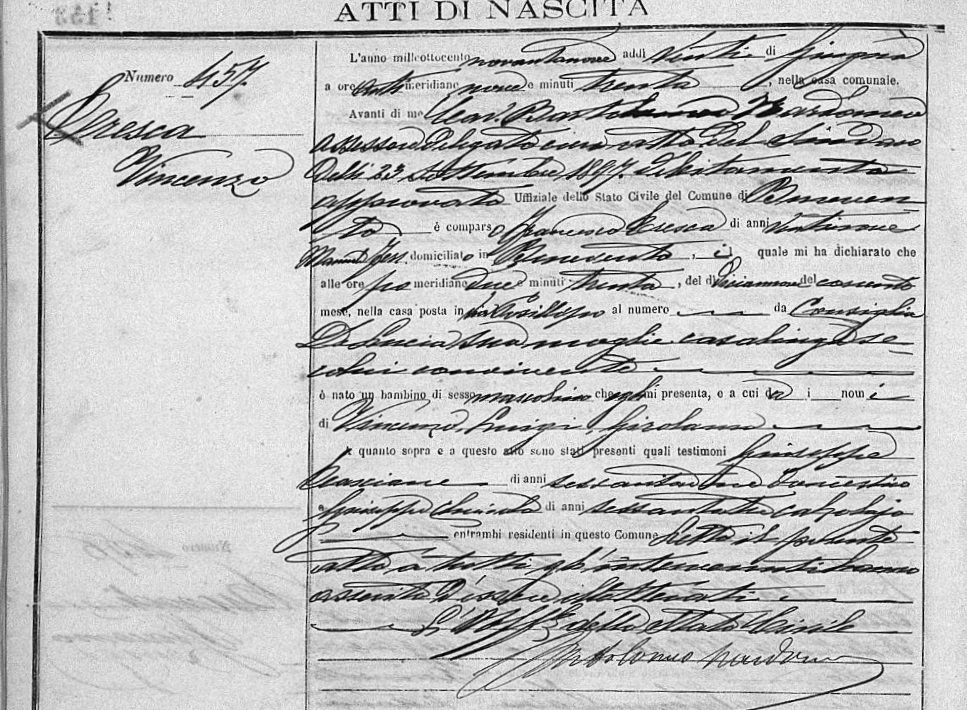 ATTI DI NASCITA
Numero 457
Cresca
Vincenzo
L'anno milleottocento novantanove addì venti di Giugno
a ore anti meridiane nove e minuti trenta, nella casa comunale.
Avanti di me Cav. Bartolomeo Nardomeo
assessore delegato con atto del Sindaco
delli 23 Settembre 1897 debitamente
approvato Uffiziale dello Stato Civile del Comune di Beneven
to è comparso Francesco Cresca di anni ventinove
domiciliato in Benevento, il quale mi ha dichiarato che
alle ore po meridiane due e minuti trenta, del dì diciannove del corrente
mese, nella casa posta in via Posillipo al numero da Consiglia
De Lucia sua moglie casalinga se-
colui convivente
è nato un bambino di sesso mascolino che egli mi presenta, e a cui dà i nomi
di Vincenzo, Luigi, Girolamo
A quanto sopra e a questo atto sono stati presenti quali testimoni Giuseppe
di anni domestico
e Giuseppe di anni sessantatre calzolajo
entrambi residenti in questo Comune. Letto il presente
atto a tutti gl'intervenuti hanno
asserito d'essere illetterati.
L'Uff. dello Stato Civile
Bartolomeo